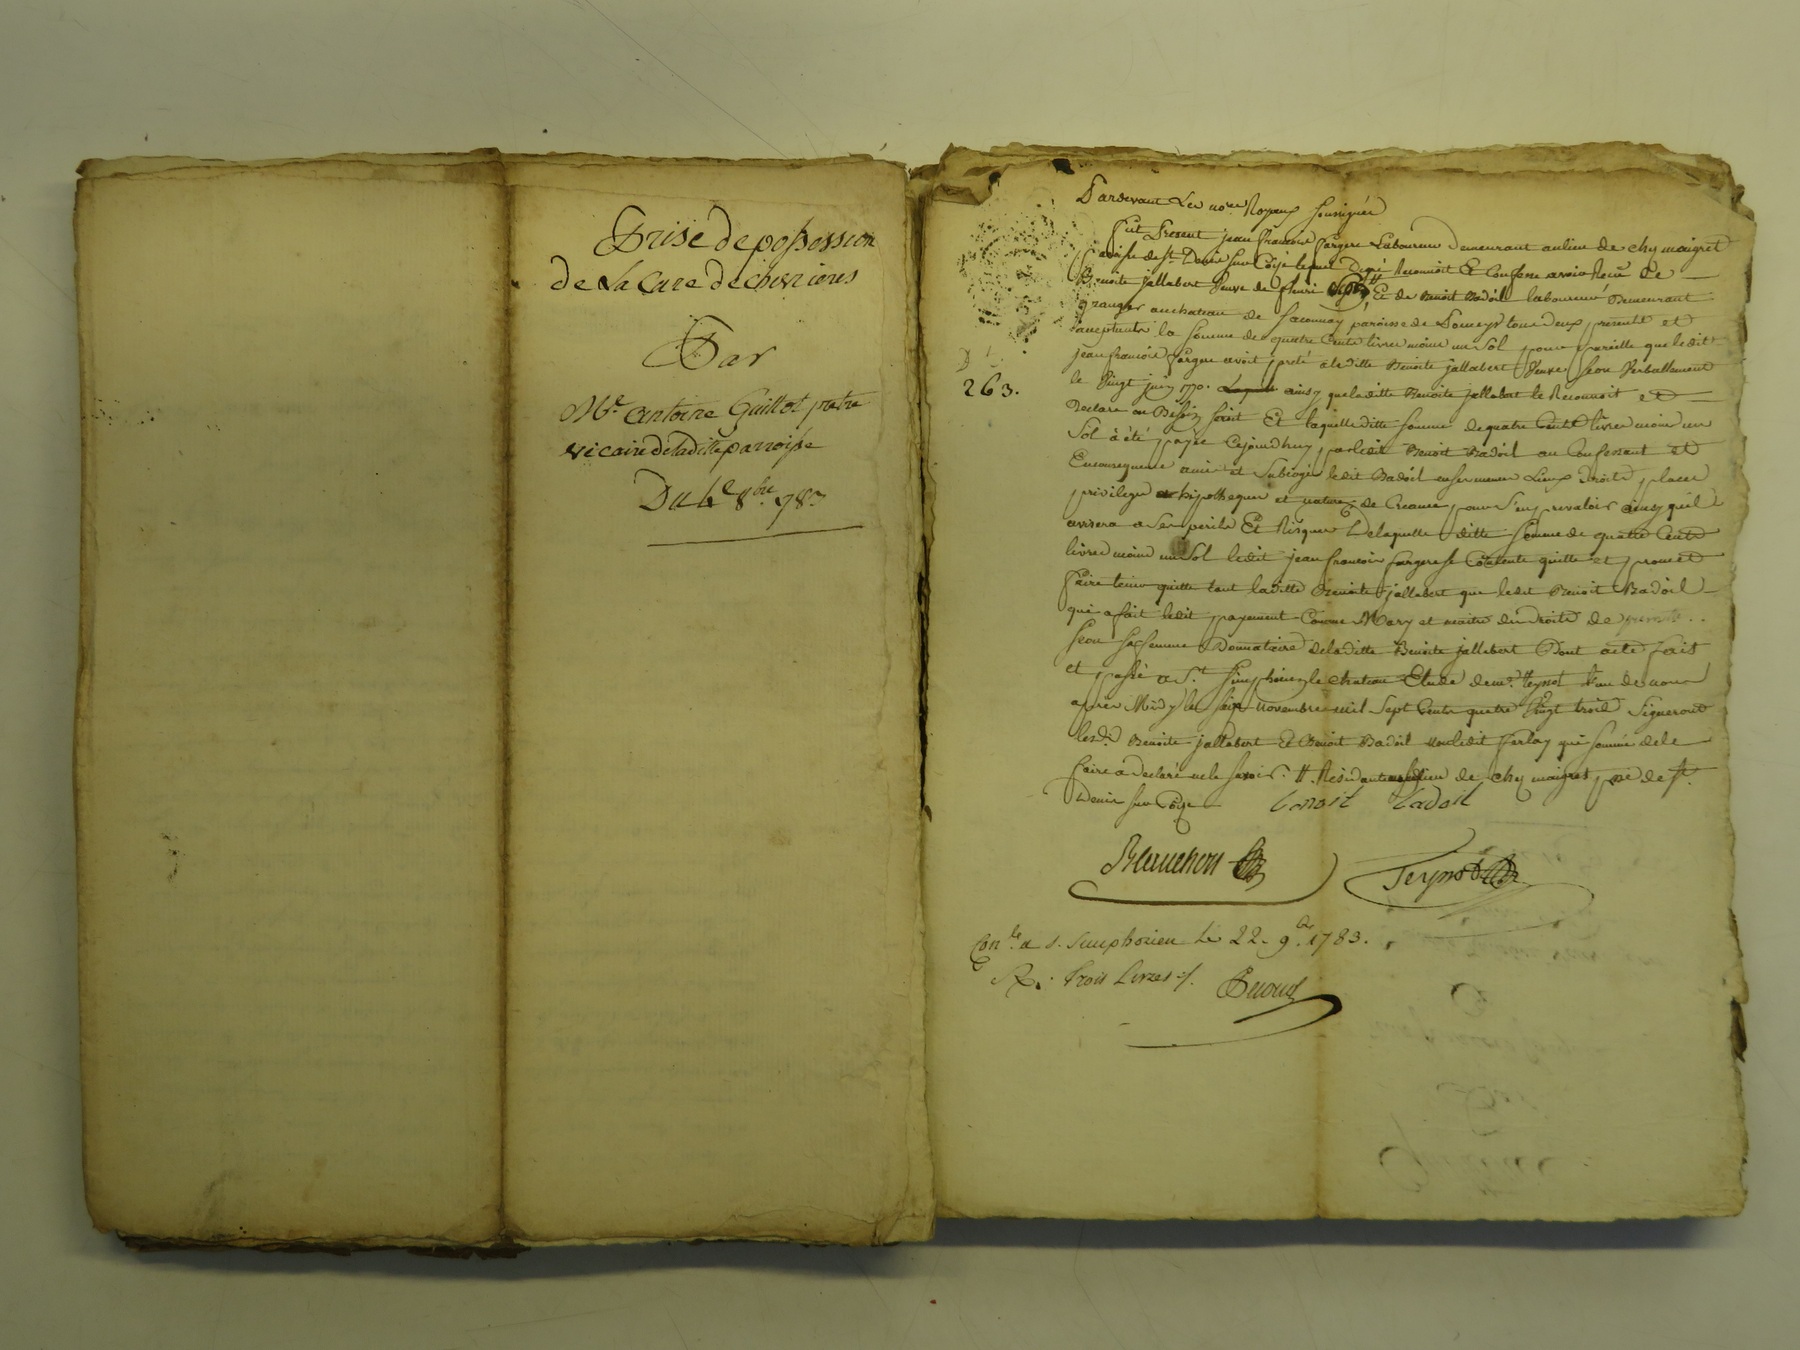 Prise de possession
de La Cure de chevrieres
Par
Mre antoine Guillot pretre
vicaire de laditte parroisse
Du 4e 8bre 1783
Pardevant Les nores Royaux soussignés
fut Present jean francois fargere Laboureur Demeurant au lieu de chez maigret
Paroisse de st Denis sur Coise lequel De gré Reconnoit Et Confesse avoir Receu de
Benoite jallabert Veuve de fleuri # Et de Benoit Badoil laboureur Demeurant
granger au chateau de Saconnay paroisse de Pomeys tous Deux presents et
acceptants la somme de quatre Cents livres moins un Sol pour pareille que ledit
jean francois fargere avoit preté a laditte Benoite jallabert Veuve feou Verballement
263.
le Vingt juin 1770. ainsy que laditte Benoite jallabert le Reconnoit et
Declare au Besoin Et laquelle ditte somme de quatre Cents livres moins un
Sol à été payée Cejourdhuy par ledit Benoit Badoil au Confessant et
En consequence a mis et Subrogé ledit Badoil en ses memes Lieux Droits places
privileges hipotheques et nature de Creance pour s'en prevaloir ainsy qu'il
avisera a Ses perils Et Risques De laquelle ditte somme de quatre Cents
livres moins un Sol ledit jean francois fargere se Contente quitte et promet
faire tenir quitte tant laditte Benoite jallabert que ledit Benoit Badoil
qui a fait ledit payement Comme Mary et maitre des Droits de
feou sa femme Donnataire de laditte Benoite jallabert Dont acte fait
et passé a St Simphorien le chateau Etude de me Teynot L'un de nous
apres Midy le Six novembre mil Sept Cents quatre Vingt trois Signeront
lesd. Benoite jallabert Et Benoit Badoil non ledit que sommé de le
faire a declaré ne le savoir. # Residante au lieu de chez maigret psse de st.
Denis sur Coise
benoit badoil
Teynot
Conle. a s. Simphorien Le 22. 9bre 1783.
R. trois Livres